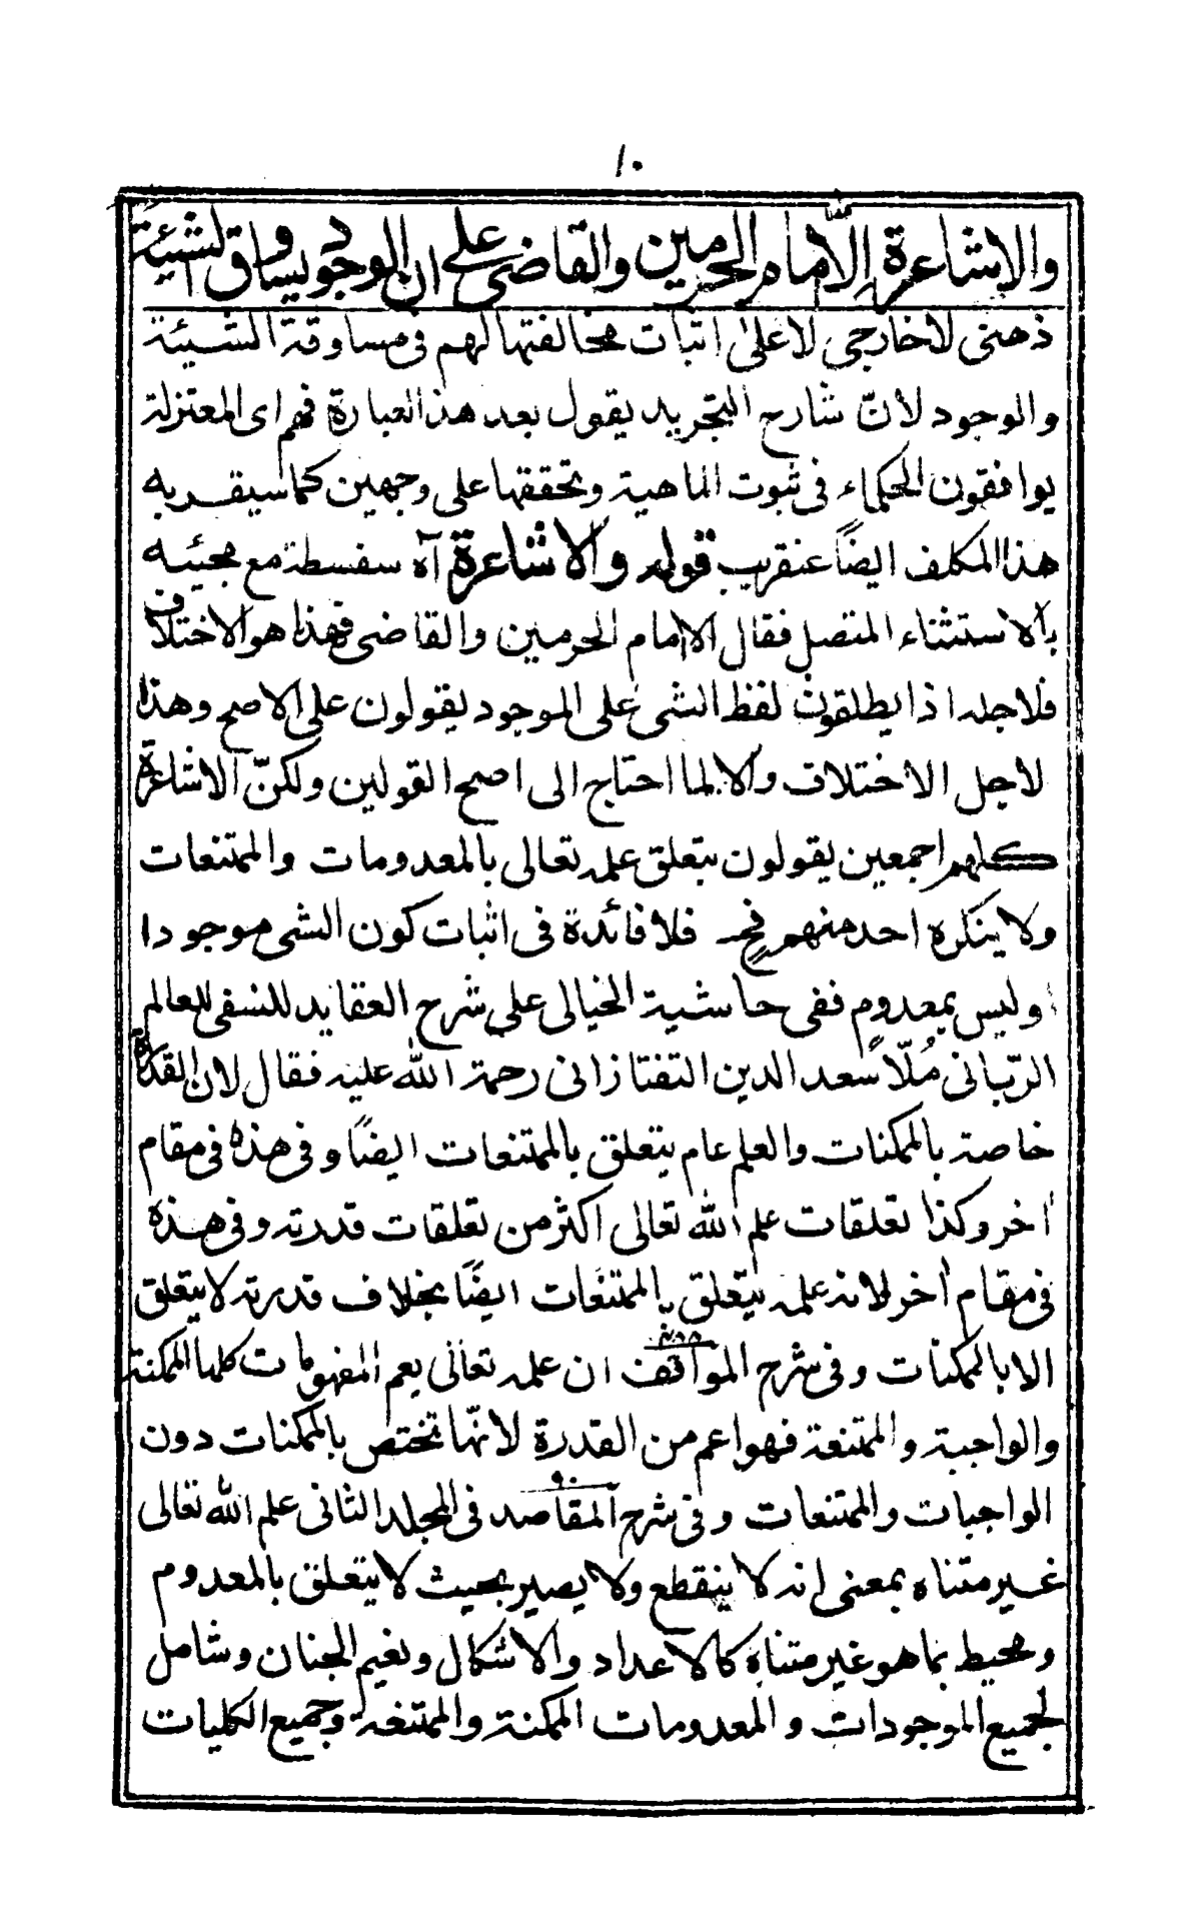 ١٠
والاشاعرة الا امام الحرمين والقاضى على ان الوجود يساوق الشيئة
ذهنى لا خارجى لا على اثبات مخالفتها لهم فى مساوقة الشيئة
والوجود لانّ شارح التجريد يقول بعد هذا العبارة فهم اى المعتزلة
يوافقون الحكماء فى ثبوت الماهية وتحققها على وجهين كما سيقربه
هذا المكلف ايضاً عنقريب قوله والاشاعرة آه سفسطة مع مجيئه
بالاستثناء المتصل فقال الا امام الحرمين والقاضى فهذا هو الاختلاف
فلاجله اذا يطلقون لفظ الشى على الموجود يقولون على الاصح وهذا
لاجل الاختلاف والا لما احتاج الى اصح القولين ولكنّ الاشاعرة
كلهم اجمعين يقولون بتعلق علمه تعالى بالمعدومات والممتنعات
ولا ينكره احد منهم فح فلا فائدة فى اثبات كون الشى موجودا
وليس بمعدوم ففى حاشية الخيالى على شرح العقايد للنسفى للعالم
الربّانى مُلّا سعد الدين التفتازانى رحمة الله عليه فقال لان القدرة
خاصة بالممكنات والعلم عام يتعلق بالممتنعات ايضاً وفى هذه فى مقام
اخر وكذا تعلقات علم الله تعالى اكثر من تعلقات قدرته وفى هذة
فى مقام اخر لانه علمه يتعلق بالممتنعات ايضاً بخلاف قدرته لا يتعلق
الا بالممكنات وفى شرح المواقف ان علمه تعالى يعم المفهومات كلها الممكنة
والواجبة والممتنعة فهو اعم من القدرة لانّها تختص بالممكنات دون
الواجبات والممتنعات وفى شرح المقاصد فى المجلد الثانى علم الله تعالى
غير متناه بمعنى انه لا ينقطع ولا يصير بحيث لا يتعلق بالمعدوم
ومحيط بما هو غير متناه كالاعداد والاشكال ونعيم الجنان وشامل
لجميع الموجودات والمعدومات الممكنة والممتنعة وجميع الكليات